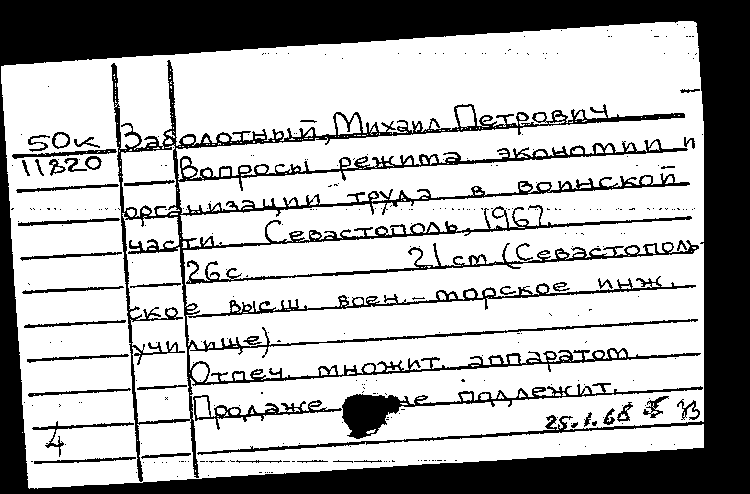 50к Заболотный, Михаил Петрович.
11820 Вопросы режима экономии и
организации труда в воинской
части. Севастополь, 1967.
26с. 21 см (Севастополь-
ское высш. воен.-морское инж.
училище).
Отпеч. множит. аппаратом.
Продаже не подлежит.
4 25.1.68